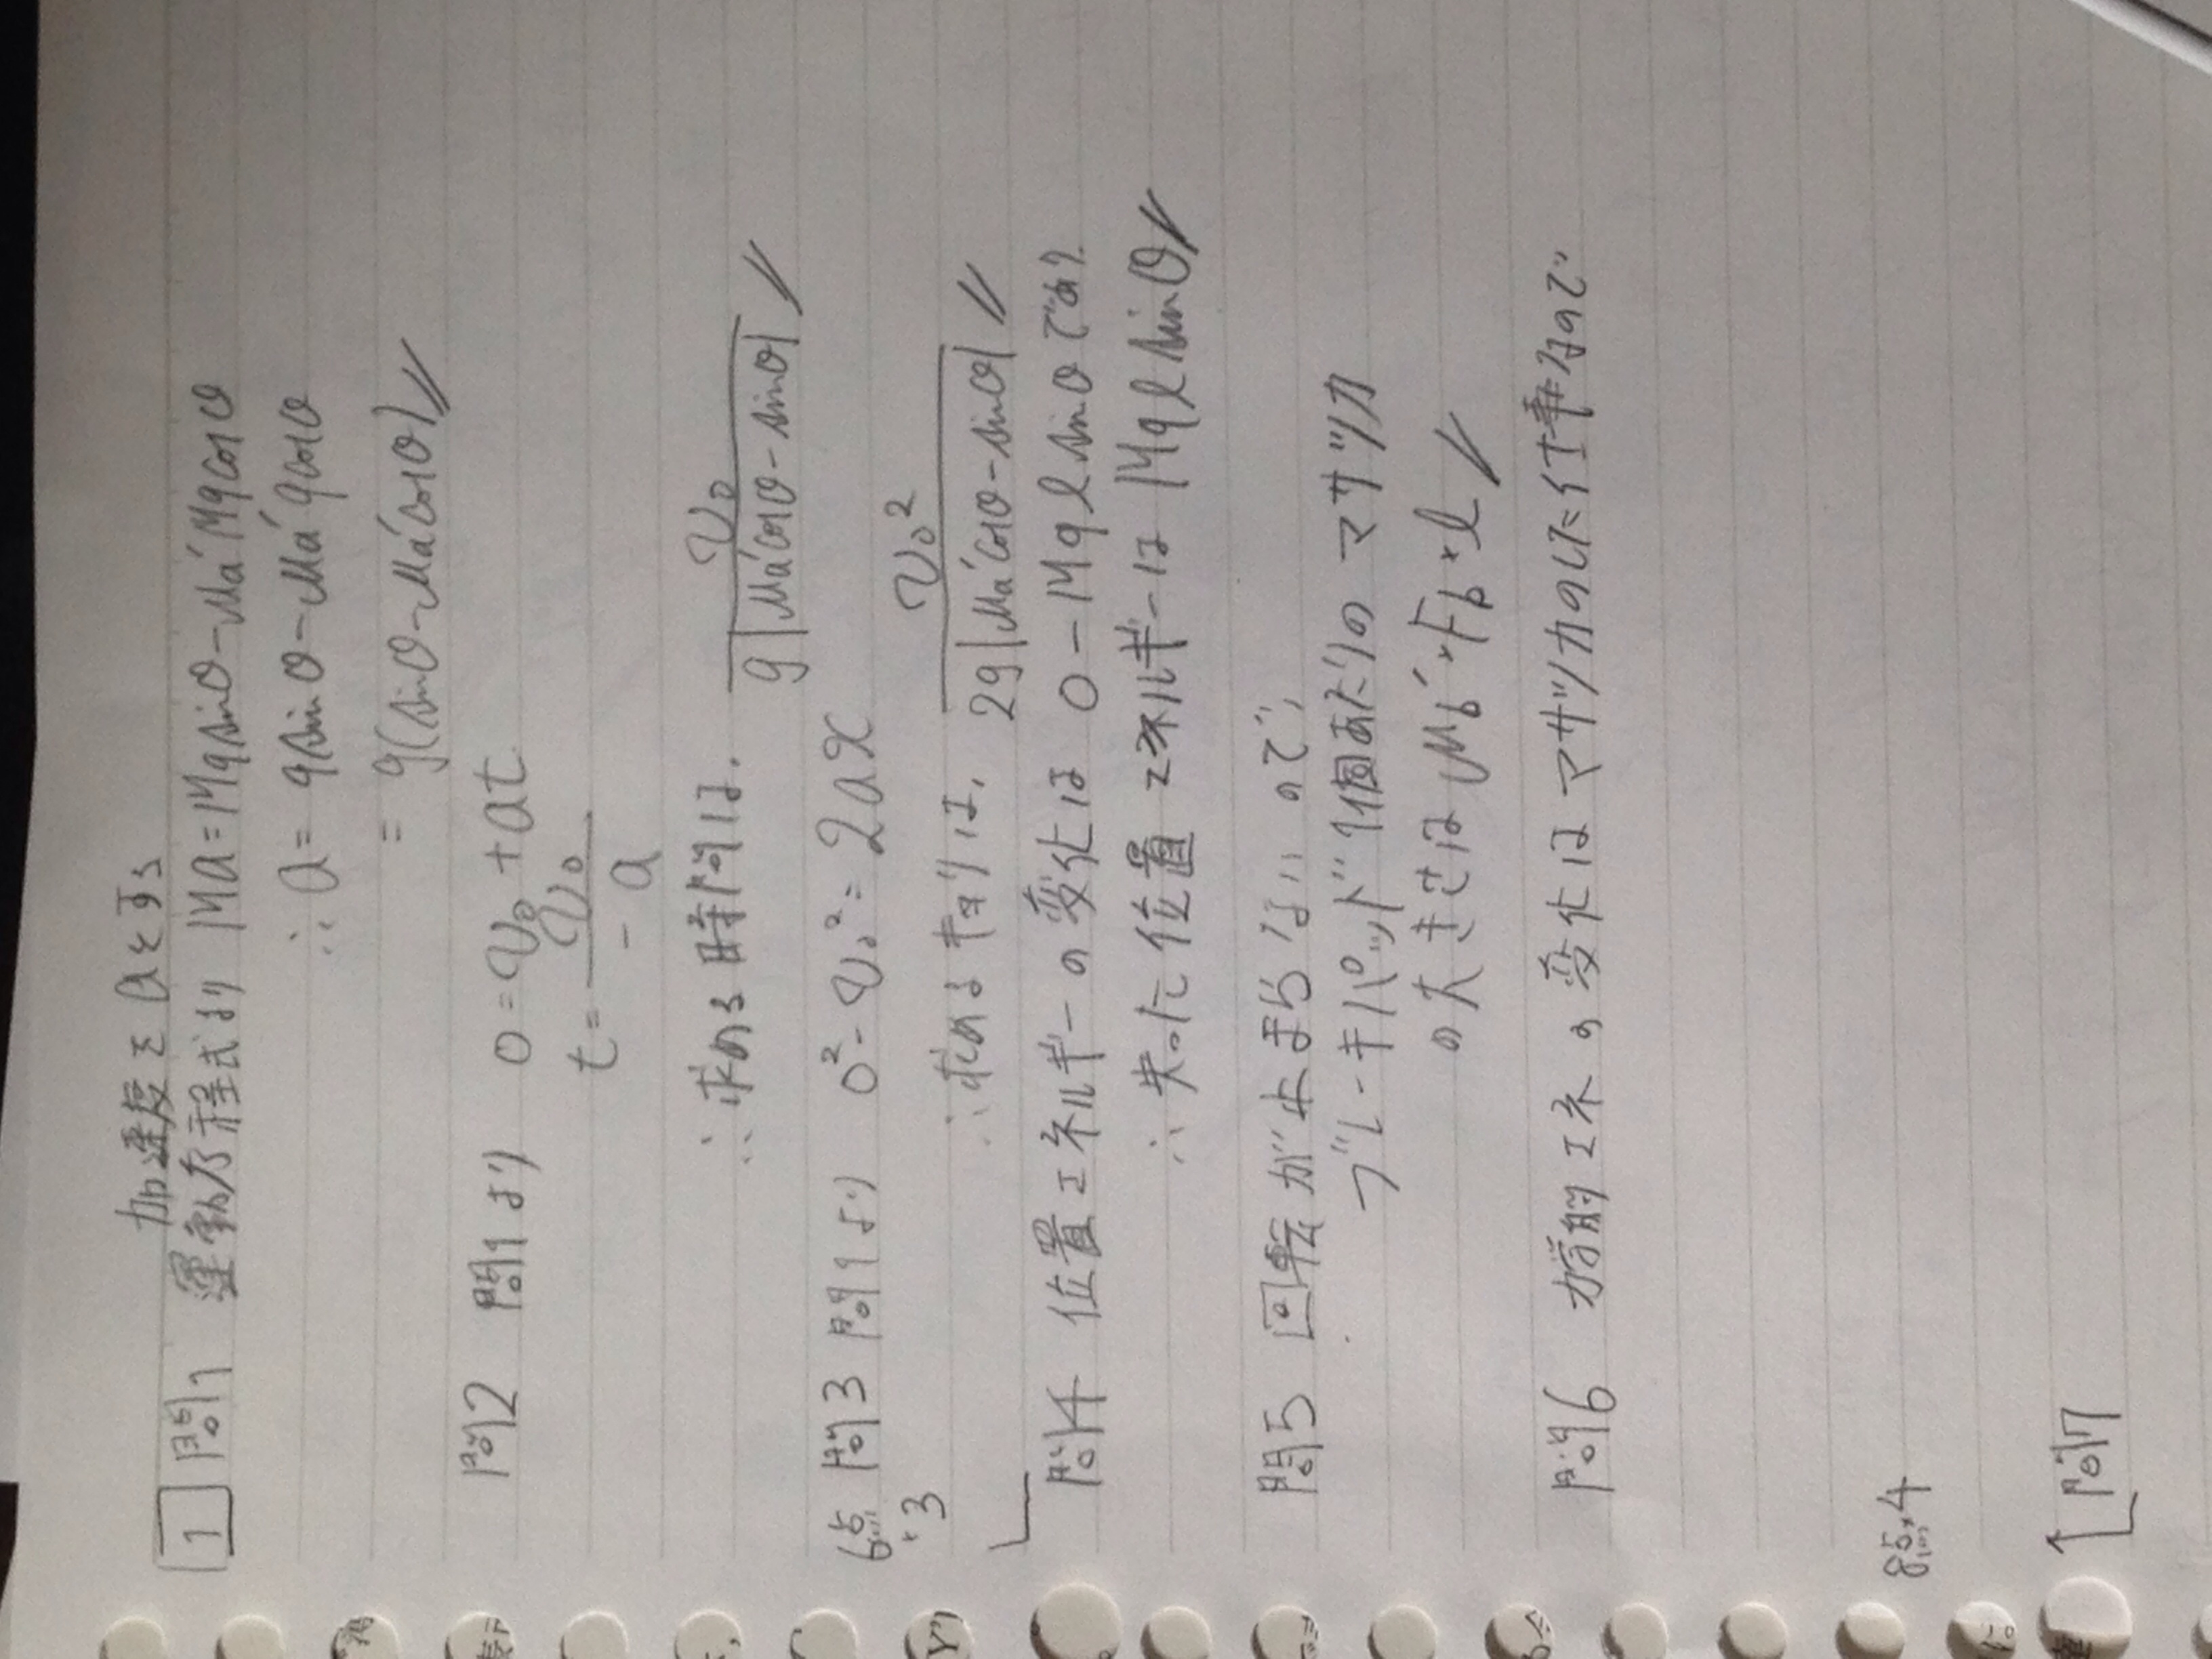 加速度をaとする
1 問1 運動方程式より Ma=Mgsinθ-μa'Mgcosθ
∴a=gsinθ-μa'gcosθ
=g(sinθ-μa'cosθ)
問2 問1より 0=v₀+at
t=v₀/-a
∴求める時間は、v₀/g(μa'cosθ-sinθ)
6点×3 問3 問1より 0²-v₀²=2ax
∴求めるキョリは、v₀²/2g(μa'cosθ-sinθ)
問4 位置エネルギーの変化は 0-Mglsinθであり
∴失った位置エネルギーは Mglsinθ
問5 回転が止まらないので、
ブレーキパッド1個あたりのマサツ力
の大きさは μb'×Fb×l
問6 力学的エネの変化はマサツ力のした仕事なので
8点×4
問7